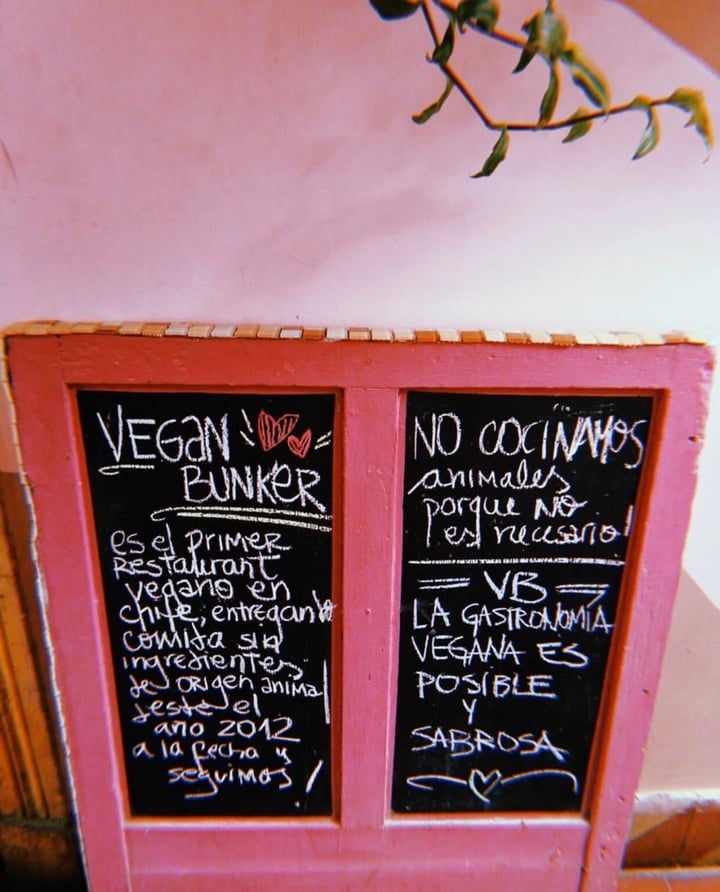 VEGAN
BUNKER
es el PRIMER
RESTAURANT
vegano en
chile, entregando
comida sin
ingredientes
de ORIGEN animal
desde el
año 2012
a la fecha y
seguimos!
NO COCINAMOS
animales
porque NO
es necesario!
VB
LA GASTRONOMIA
VEGANA ES
POSIBLE
Y
SABROSA